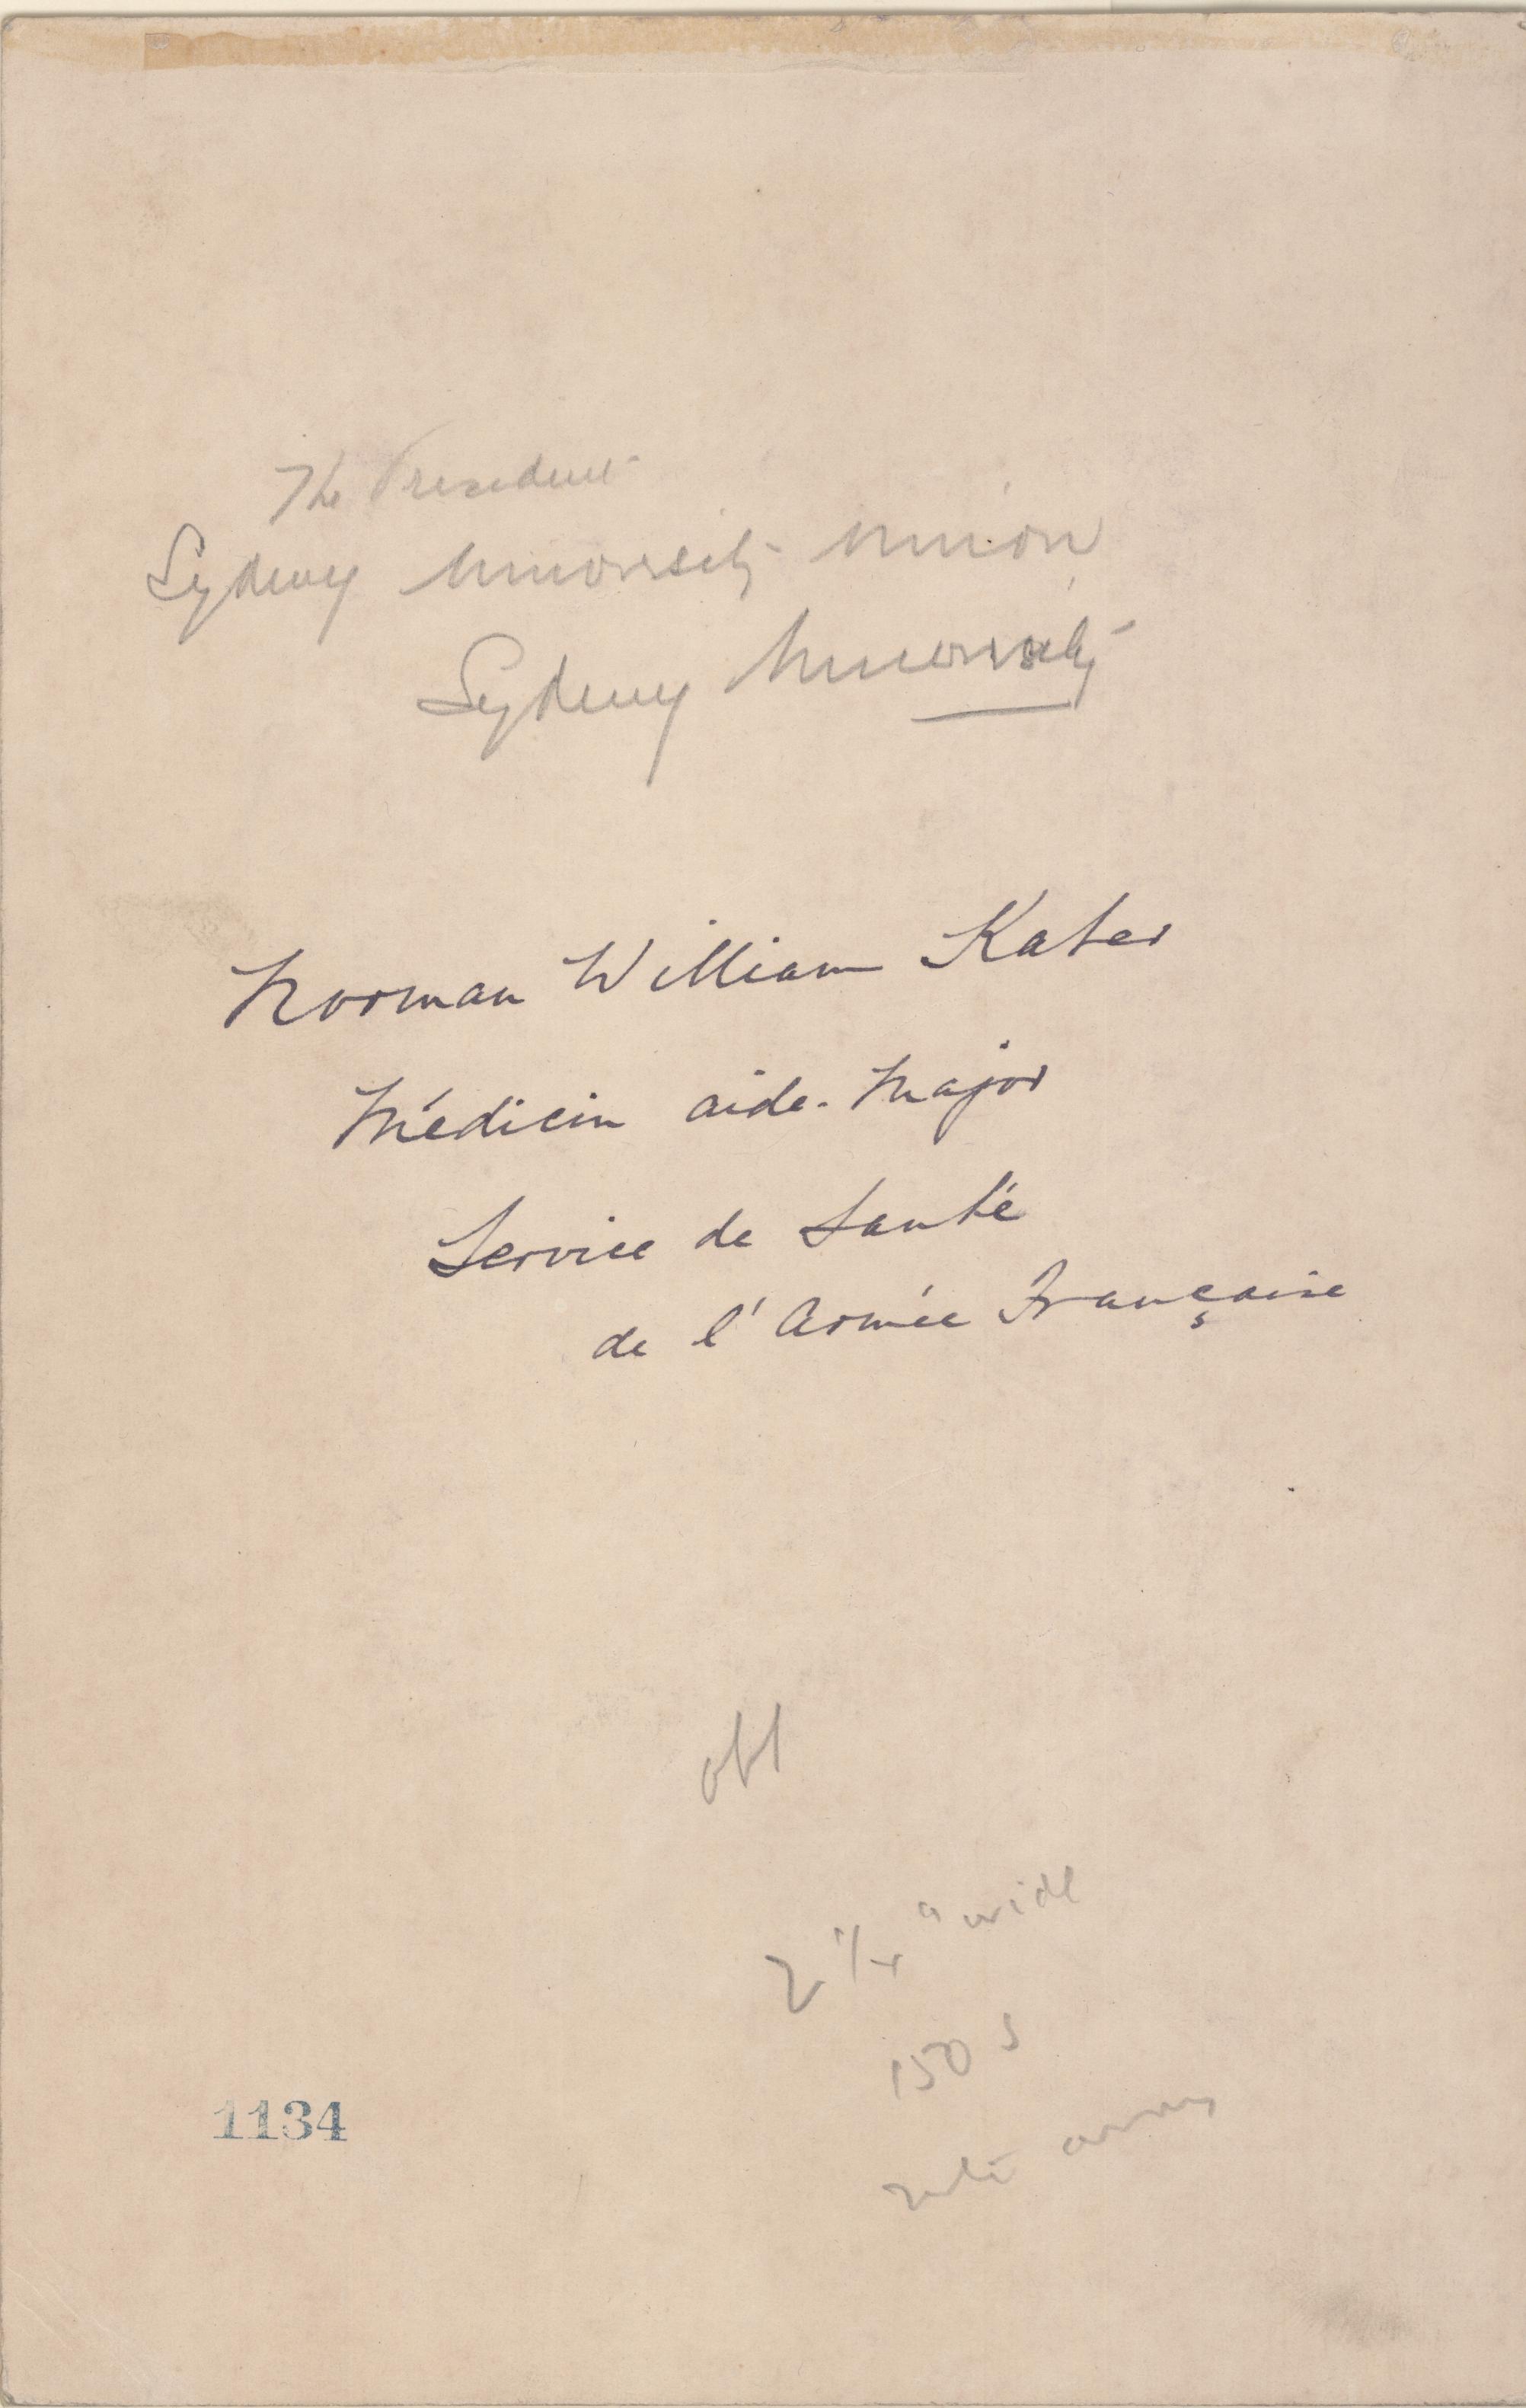 The President
Sydney University Union
Sydney University
Norman William Kater
Médicin aide-Major
Service de Santé
de l'Armée Française
2 1/4" wide
150 s
1134